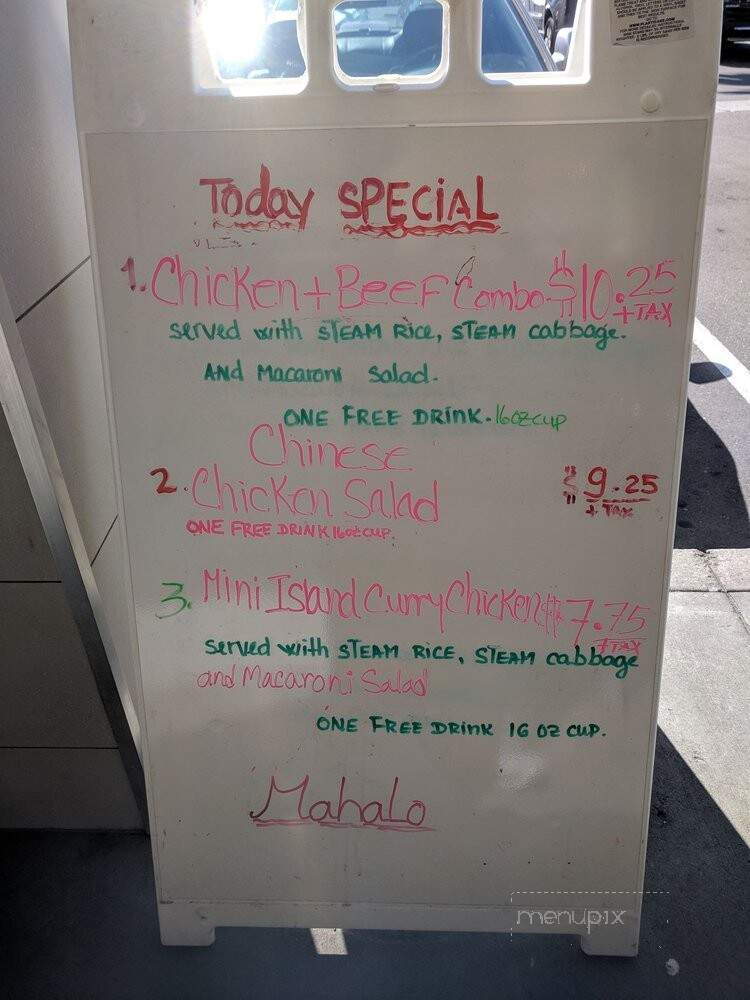 Today SPECIAL
1. Chicken + Beef Combo $10.25
+ TAX
served with STEAM RICE, STEAM cabbage.
AND Macaroni Salad.
ONE FREE DRINK. 16 oz CUP
Chinese
2. Chicken Salad $9.25
+ TAX
ONE FREE DRINK 16 oz CUP.
3. Mini Island Curry Chicken $7.75
+ TAX
served with STEAM RICE, STEAM cabbage
and Macaroni Salad
ONE FREE DRINK 16 OZ CUP.
Mahalo
menupix